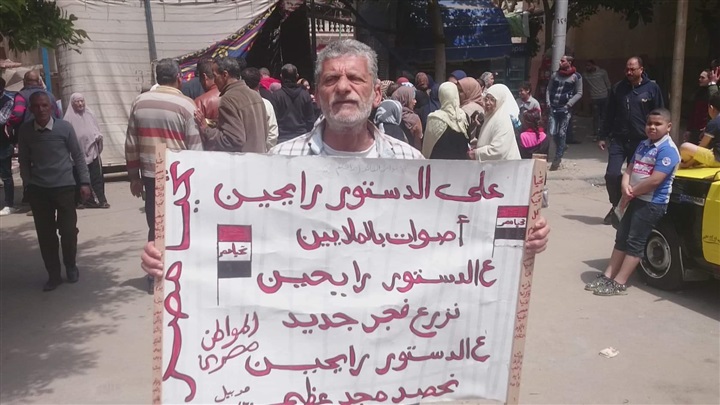 تحيا مصر
على الدستور رايحين
أصوات بالملايين
تحيا مصر
تحيا مصر
ع الدستور رايحين
نزرع فجر جديد
المواطن
مصري
ع الدستور رايحين
نحصد مجد عظيم
موبيل